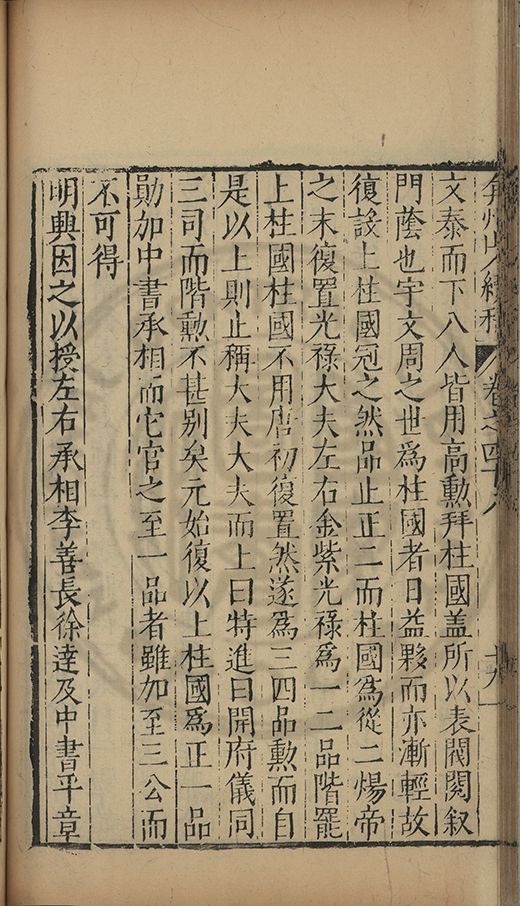 弇州山人續稿 卷之四十八 十九
文泰而下八人皆用高勳拜柱國盖所以表閥閱叙
門蔭也宇文周之世爲柱國者日益夥而亦漸輕故
復設上柱國冠之然品止正二而柱國爲從二煬帝
之末復置光祿大夫左右金紫光祿爲一二品階罷
上柱國柱國不用唐初復置然遂爲三四品勳而自
是以上則止稱大夫大夫而上曰特進曰開府儀同
三司而階勳不甚别矣元始復以上柱國爲正一品
勛加中書承相而它官之至一品者雖加至三公而
不可得
明興因之以授左右承相李善長徐達及中書平章